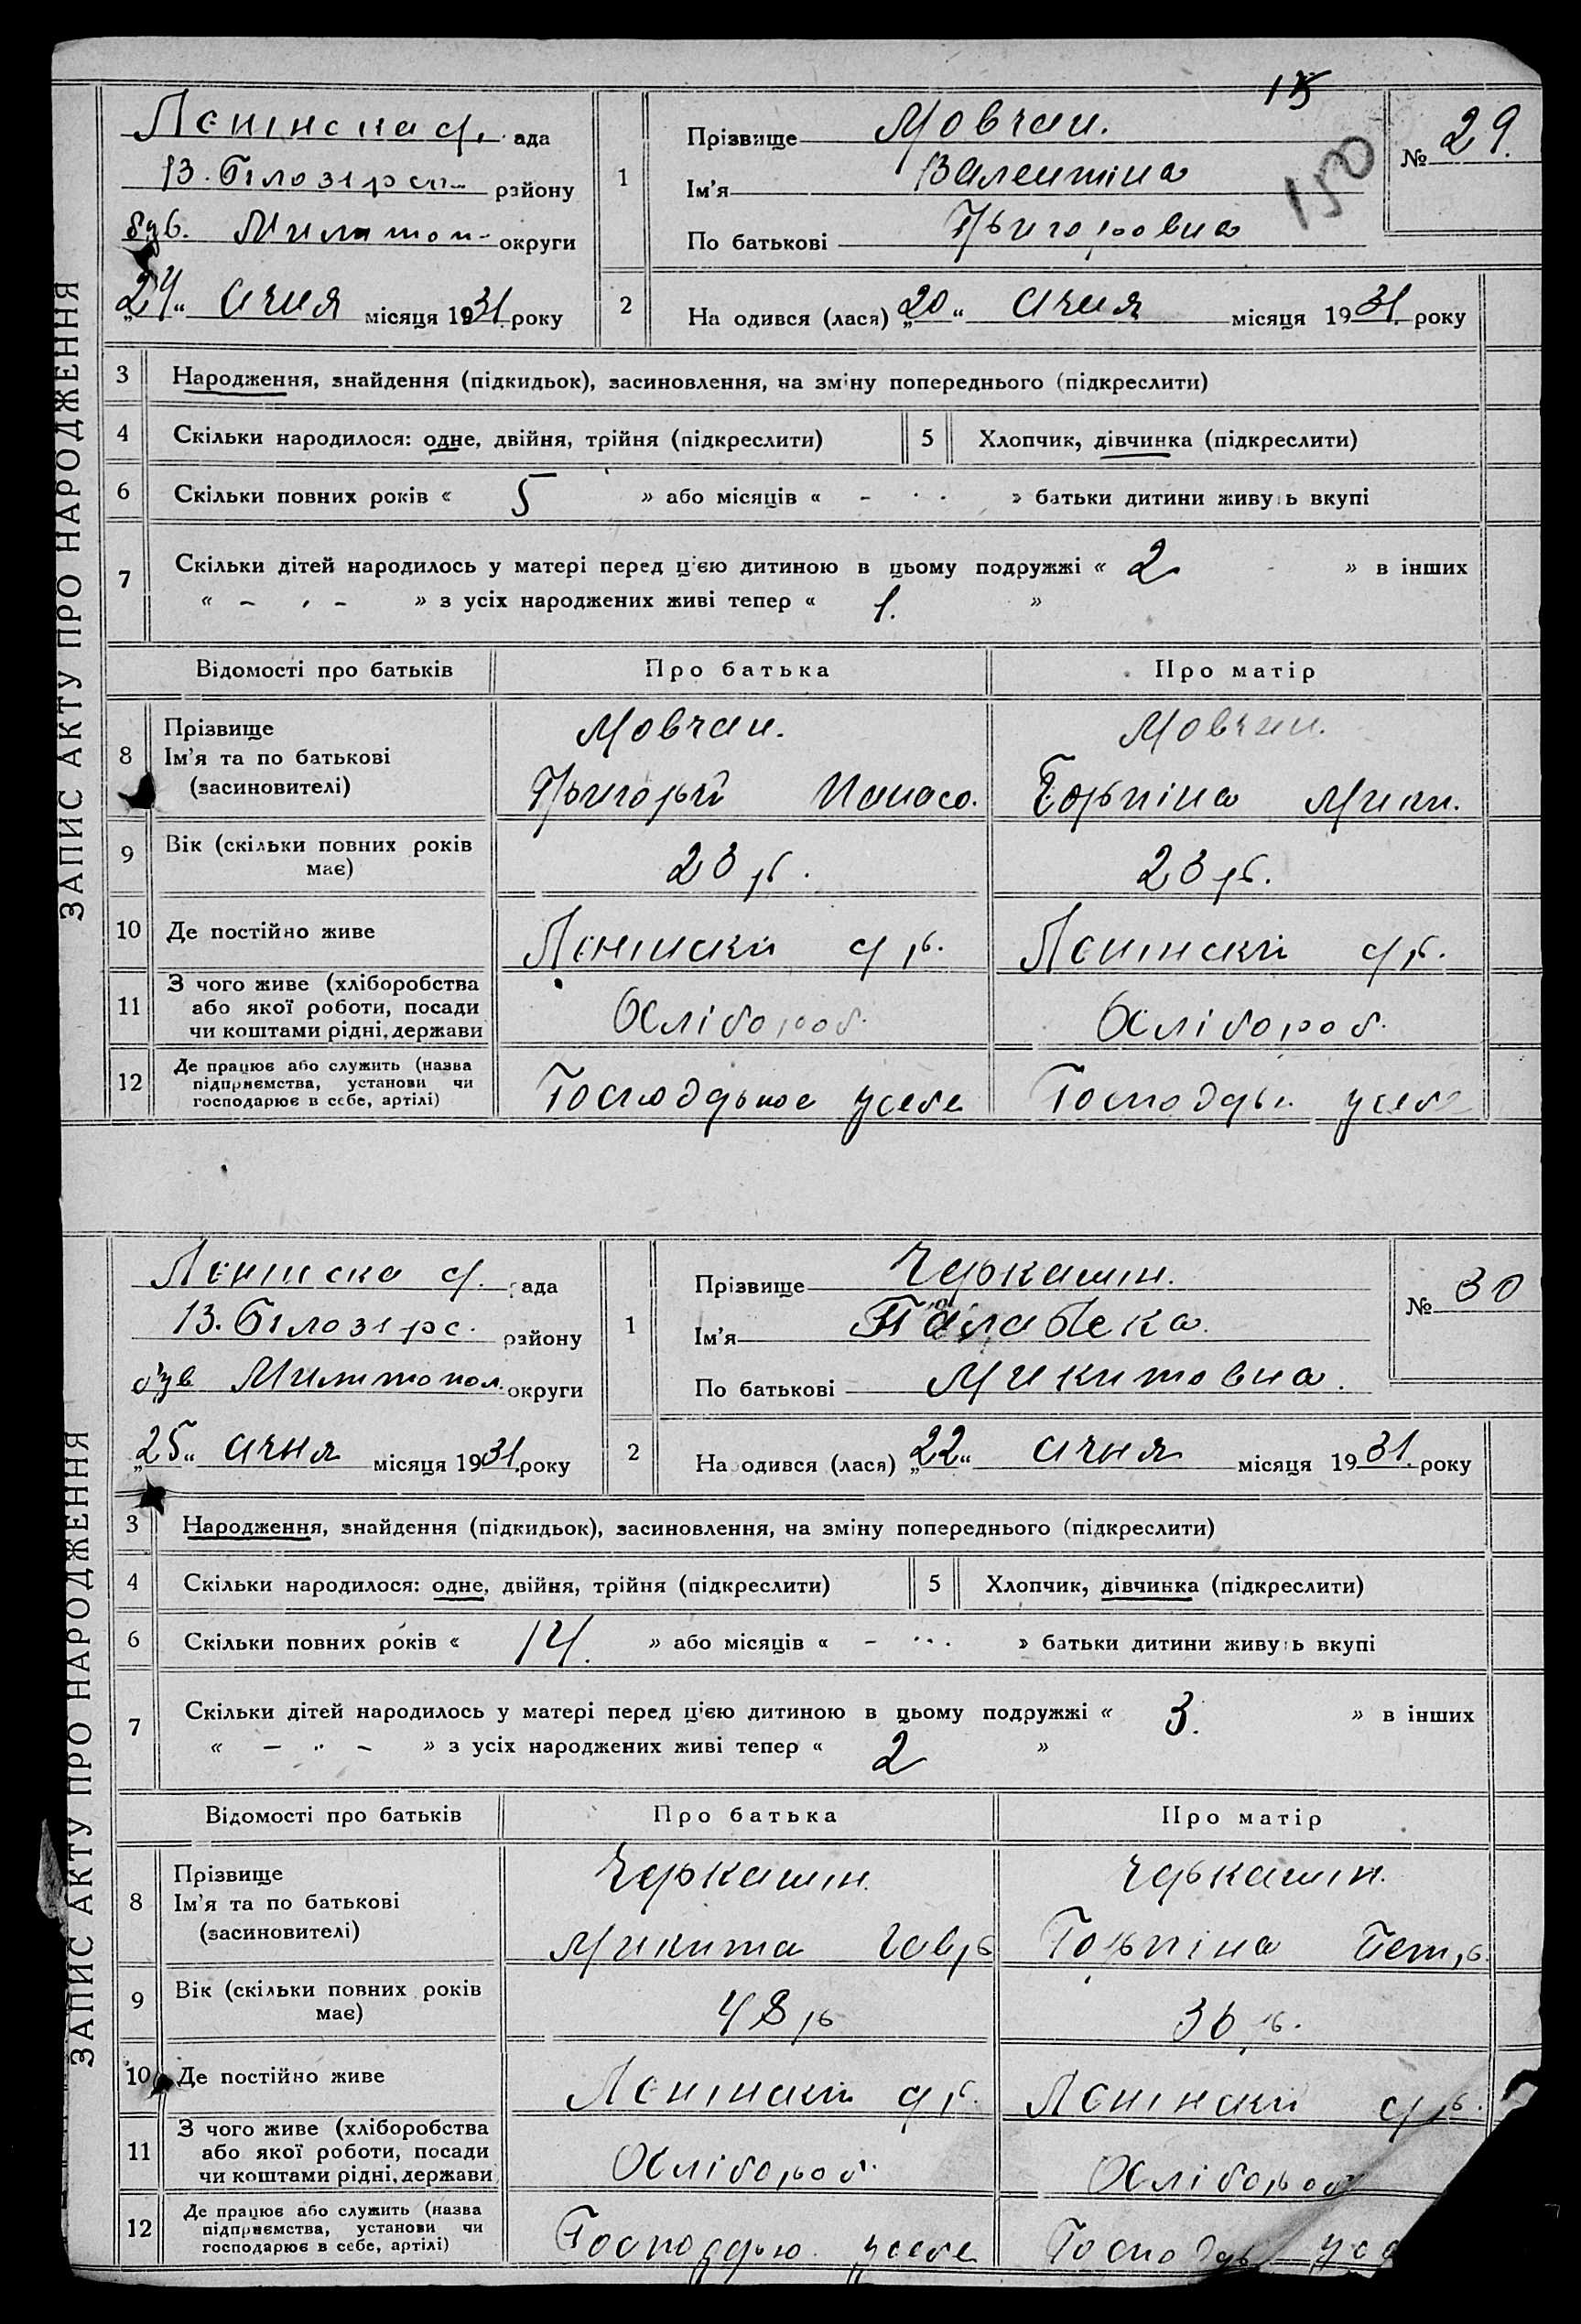 ЗАПИС АКТУ ПРО НАРОДЖЕННЯ
15
150
Ленінска с/. ада
В. Білозерс. району
був. Мелитоп. округи
„24“ січня місяця 1931 року
1
Прізвище Мовчан.
Ім’я Валентина
По батькові Григоровна
№ 29.
2
На одився (лася) „20“ січня місяця 1931. року
3 Народження, знайдення (підкидьок), засиновлення, на зміну попереднього (підкреслити)
4 Скільки народилося: одне, двійня, трійня (підкреслити) 5 Хлопчик, дівчинка (підкреслити)
6 Скільки повних років « 5 » або місяців « - » батьки дитини живуть вкупі
7 Скільки дітей народилось у матері перед цією дитиною в цьому подружжі « 2 » в інших
« - - » з усіх народжених живі тепер « 1. »
Відомості про батьків Про батька Про матір
8 Прізвище Мовчан. Мовчан.
Ім’я та по батькові
(засиновителі) Григорій Панасо. Горпіна Мики.
9 Вік (скільки повних років
має) 23 р. 23 р.
10 Де постійно живе Ленінский с/р. Ленінский с/р.
11 З чого живе (хліборобства
або якої роботи, посади
чи коштами рідні, держави Хлібороб. Хлібороб.
12 Де працює або служить (назва
підприємства, установи чи
господарює в себе, артілі) Господарює у себе Господар. у себе
ЗАПИС АКТУ ПРО НАРОДЖЕННЯ
Ленінска с/. ада
В. Білозерс. району
був Мелитопол. округи
„25“ січня місяця 1931. року
1
Прізвище Черкашин.
Ім’я
По батькові Микитовна.
№ 30
2
На одився (лася) „22“ січня місяця 1931. року
3 Народження, знайдення (підкидьок), засиновлення, на зміну попереднього (підкреслити)
4 Скільки народилося: одне, двійня, трійня (підкреслити) 5 Хлопчик, дівчинка (підкреслити)
6 Скільки повних років « 14. » або місяців « - » батьки дитини живуть вкупі
7 Скільки дітей народилось у матері перед цією дитиною в цьому подружжі « 3. » в інших
« - - » з усіх народжених живі тепер « 2 »
Відомості про батьків Про батька Про матір
8 Прізвище Черкашин. Черкашин.
Ім’я та по батькові
(засиновителі) Микита Гавр Горпіна Петр.
9 Вік (скільки повних років
має) 48 р 36 р.
10 Де постійно живе Ленінский с/р. Ленінский с/р.
11 З чого живе (хліборобства
або якої роботи, посади
чи коштами рідні, держави Хлібороб. Хлібороб
12 Де працює або служить (назва
підприємства, установи чи
господарює в себе, артілі) Господарю. у себе Господар